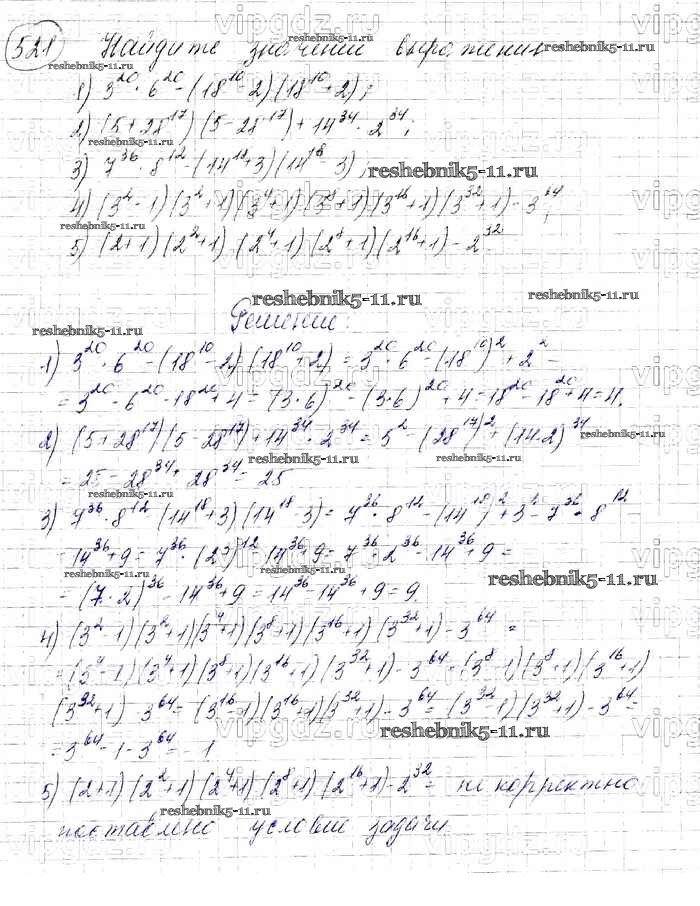 521 Найдите значение выражения
1) 3^20 · 6^20 − (18^10 − 2)(18^10 + 2);
2) (5 + 28^17)(5 − 28^17) + 14^34 · 2^34;
3) 7^36 · 8^12 − (14^18 + 3)(14^18 − 3);
4) (3^2 − 1)(3^2 + 1)(3^4 + 1)(3^8 + 1)(3^16 + 1)(3^32 + 1) − 3^64;
5) (2 + 1)(2^2 + 1)(2^4 + 1)(2^8 + 1)(2^16 + 1) − 2^32.
Решение:
1) 3^20 · 6^20 − (18^10 − 2)(18^10 + 2) = 3^20 · 6^20 − (18^10)^2 + 2^2 =
= 3^20 · 6^20 − 18^20 + 4 = (3 · 6)^20 − (3 · 6)^20 + 4 = 18^20 − 18^20 + 4 = 4.
2) (5 + 28^17)(5 − 28^17) + 14^34 · 2^34 = 5^2 − (28^17)^2 + (14 · 2)^34 =
= 25 − 28^34 + 28^34 = 25
3) 7^36 · 8^12 − (14^18 + 3)(14^18 − 3) = 7^36 · 8^12 − (14^18)^2 + 3^2 = 7^36 · 8^12 −
− 14^36 + 9 = 7^36 · (2^3)^12 − 14^36 + 9 = 7^36 · 2^36 − 14^36 + 9 =
= (7 · 2)^36 − 14^36 + 9 = 14^36 − 14^36 + 9 = 9.
4) (3^2 − 1)(3^2 + 1)(3^4 + 1)(3^8 + 1)(3^16 + 1)(3^32 + 1) − 3^64 =
= (3^4 − 1)(3^4 + 1)(3^8 + 1)(3^16 + 1)(3^32 + 1) − 3^64 = (3^8 − 1)(3^8 + 1)(3^16 + 1)
(3^32 + 1) − 3^64 = (3^16 − 1)(3^16 + 1)(3^32 + 1) − 3^64 = (3^32 − 1)(3^32 + 1) − 3^64 =
= 3^64 − 1 − 3^64 = − 1
5) (2 + 1)(2^2 + 1)(2^4 + 1)(2^8 + 1)(2^16 + 1) − 2^32 = не корректно
поставлено условие задачи.
reshebnik5-11.ru
vipgdz.ru